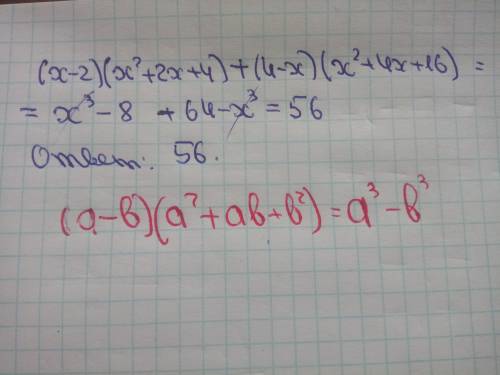 (x-2)(x²+2x+4)+(4-x)(x²+4x+16)=
= x³-8 +64-x³ = 56
Ответ: 56.
(a-b)(a²+ab+b²)=a³-b³